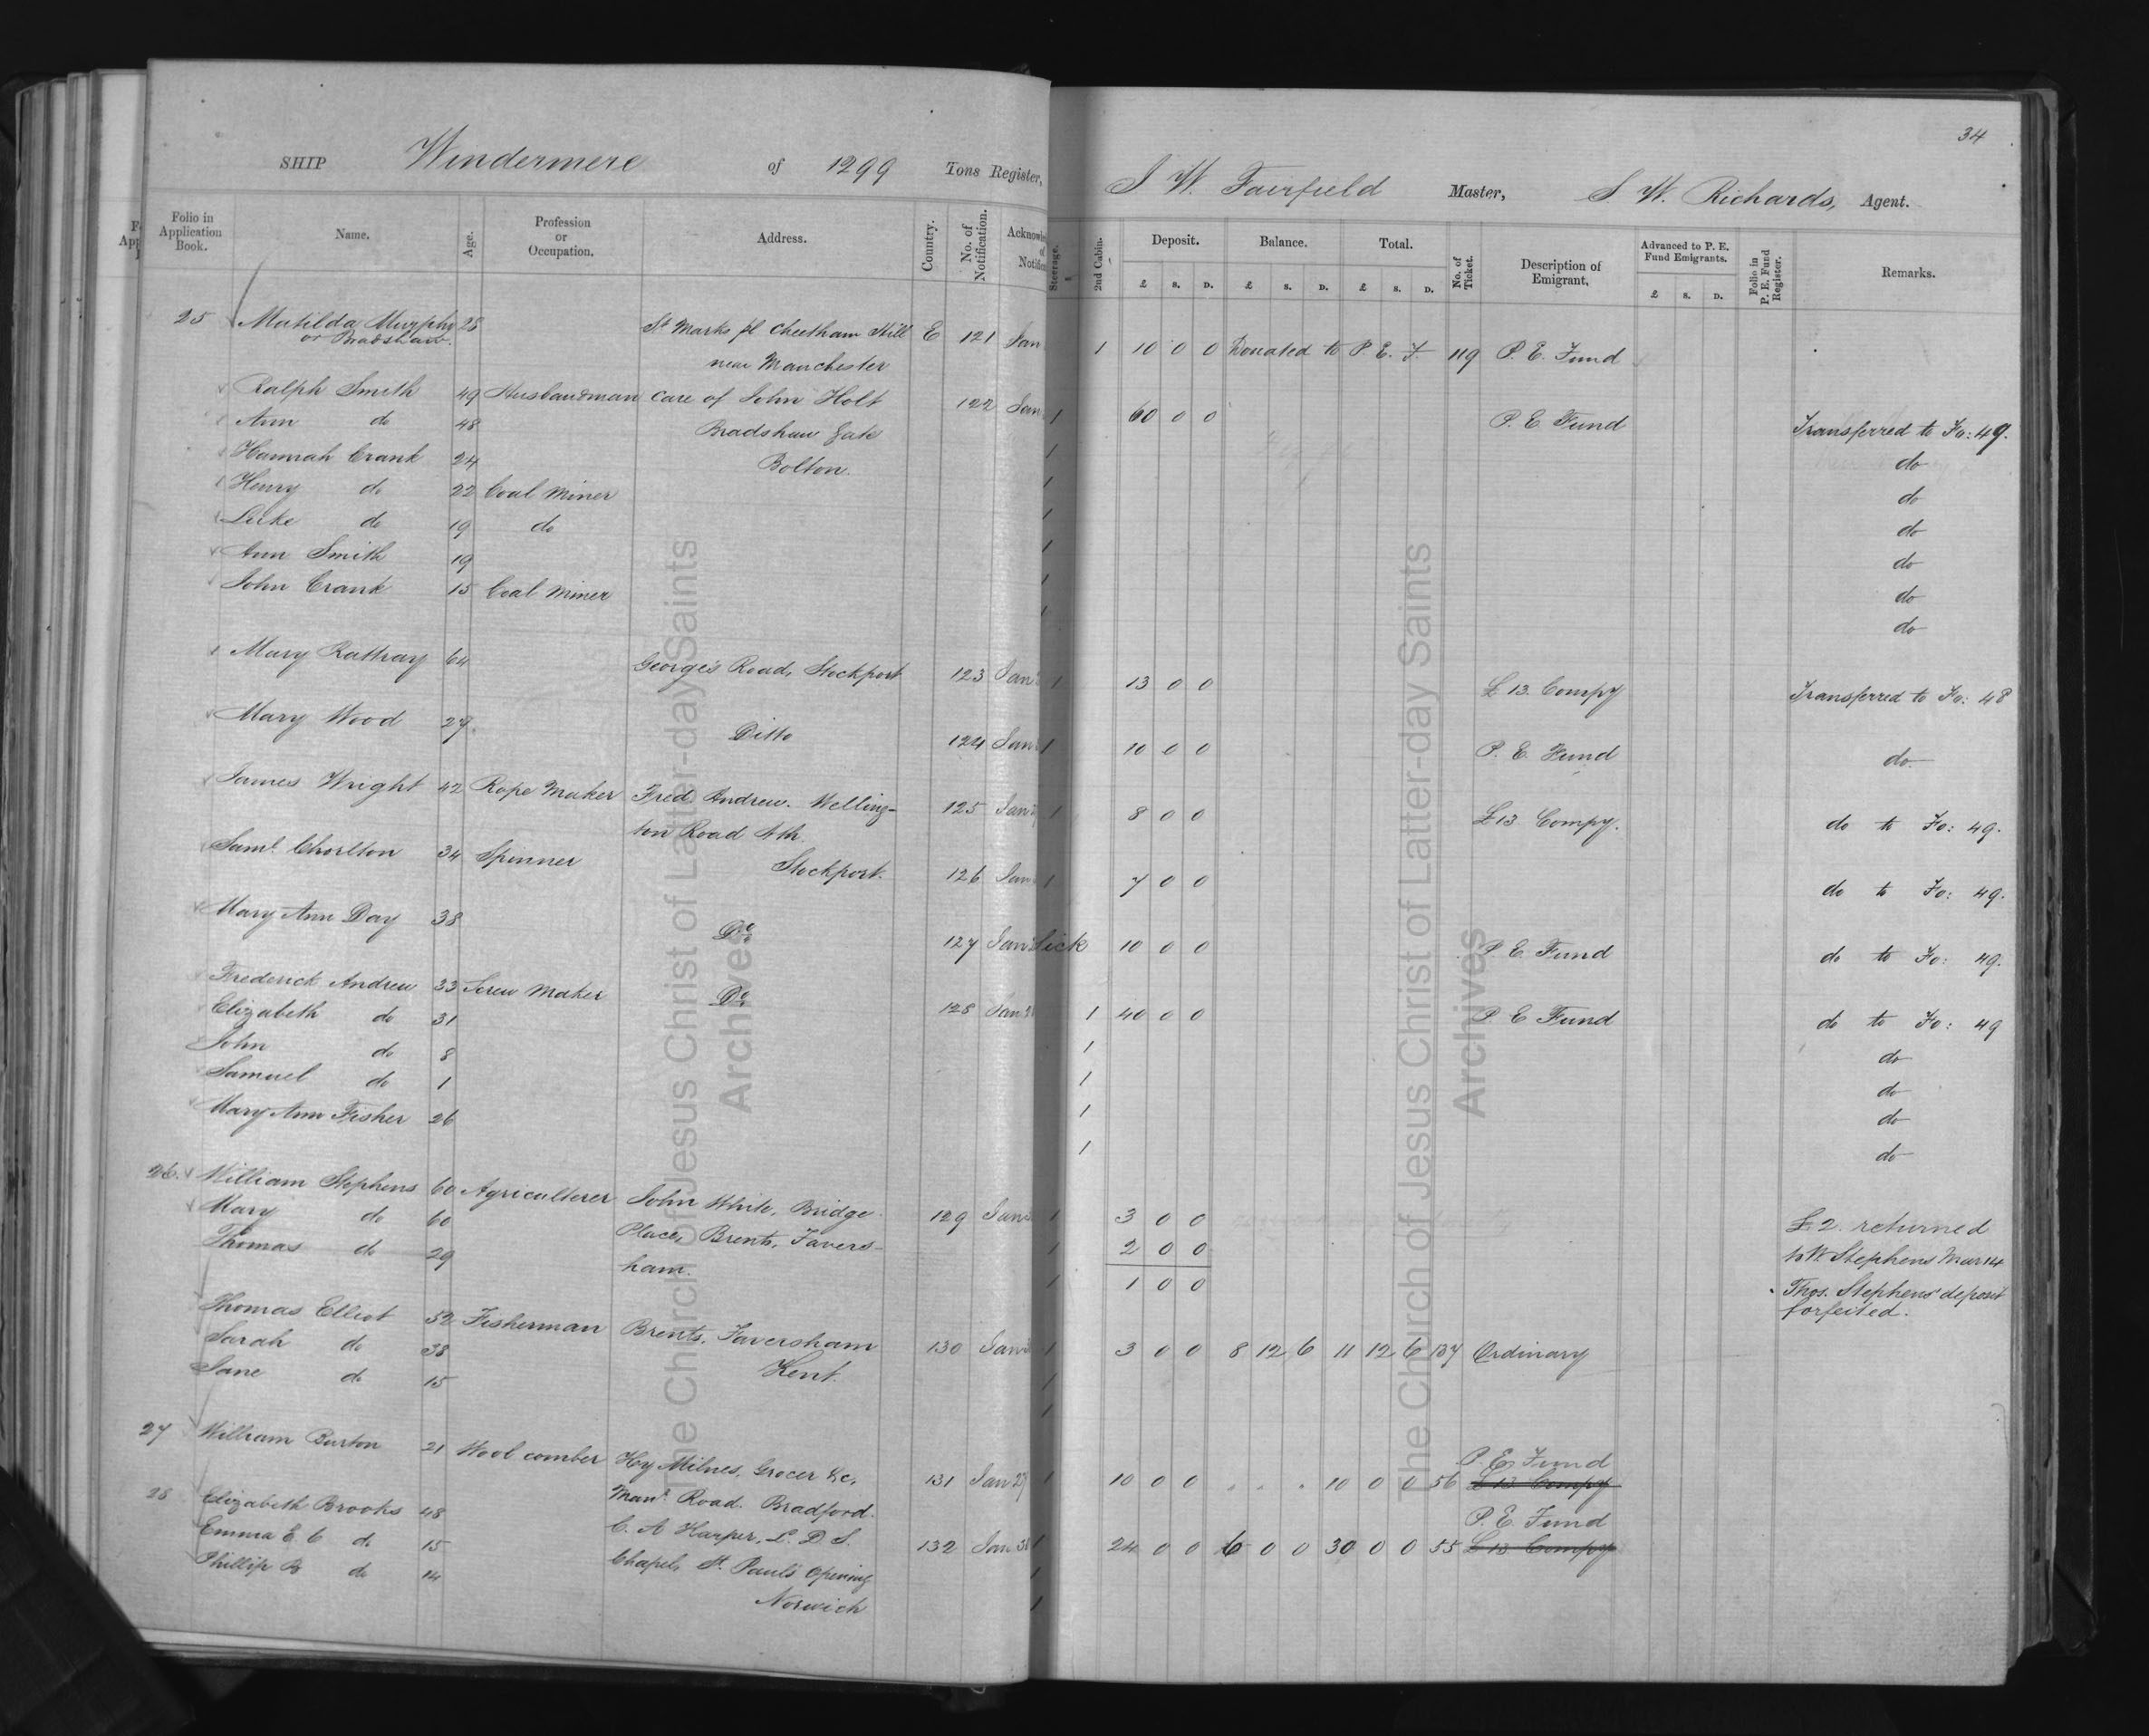 34
SHIP Windermere of 1299 Tons Register, J W. Fairfield Master, S W. Richards, Agent.
Folio in Application Book. Name. Age. Profession or Occupation. Address. Country. No. of Notification. Steerage. 2nd Cabin. Deposit. Balance. Total. No. of Ticket. Description of Emigrant, Advanced to P. E. Fund Emigrants. Folio in P. E. Fund Register. Remarks.
£ S. D. £ S. D. £ S. D. £ S. D.
25 Matilda Murphy 28 St Marks pl Cheetham Hill E 121 Jan 1 10 0 0 Donated to P. E. F. 119 P. E. Fund
or Bradshaw. near Manchester
Ralph Smith 49 Husbandman care of John Holt 122 Jan 1 60 0 0 P. E Fund Transferred to Fo: 49.
Ann do 48 Bradshaw Gate 1 do
Hannah Crank 24 Bolton. 1 do
Henry do 22 Coal Miner 1 do
Luke do 19 do 1 do
Ann Smith 19 1 do
John Crank 15 Coal Miner 1 do
Mary Rattray 64 George's Road, Stockport 123 Jan 1 13 0 0 £13. Compy Transferred to Fo: 48
Mary Wood 27 Ditto 124 Jan 1 10 0 0 P. E. Fund do.
James Wright 42 Rope Maker Fred. Andrew. Welling- 125 Jan 1 8 0 0 £13 Compy. do to Fo: 49.
ton Road Sth.
Saml. Chorlton 34 Spinner Stockport. 126 Jan 1 7 0 0 do to Fo: 49.
Mary Ann Day 38 Do 127 Jan Sick 10 0 0 P. E. Fund do to Fo: 49.
Frederick Andrew 33 Screw Maker Do 128 Jan 1 40 0 0 P. E Fund do to Fo: 49
Elizabeth do 31 1 do
John do 8 1 do
Samuel do 1 1 do
Mary Ann Fisher 26 1 do
26. William Stephens 60 Agriculterer John White, Bridge 129 Jan 1 3 0 0 £2. returned
Mary do 60 Place, Brents, Favers- 1 2 0 0 to W Stephens Mar 14
Thomas do 29 ham. 1 1 0 0 Thos. Stephens' deposit
forfeited.
Thomas Elliot 52 Fisherman Brents, Faversham 130 Jan 1 3 0 0 8 12 6 11 12 6 137 Ordinary
Sarah do 38 Kent. 1
Jane do 15 1
27 William Burton 21 Wool comber Hy Milnes, Grocer &c, 131 Jan 29 1 10 0 0 . . . 10 0 0 56 P. E. Fund
£13 Compy
Manr. Road. Bradford.
28 Elizabeth Brooks 48 C. A Harper, L. D S. 132 Jan 1 24 0 0 6 0 0 30 0 0 55 P. E. Fund
£13 Compy
Emma E. C do 15 Chapel, St. Paul's Opening 1
Phillip B do 14 Norwich 1
The Church of Jesus Christ of Latter-day Saints
Archives
The Church of Jesus Christ of Latter-day Saints
Archives